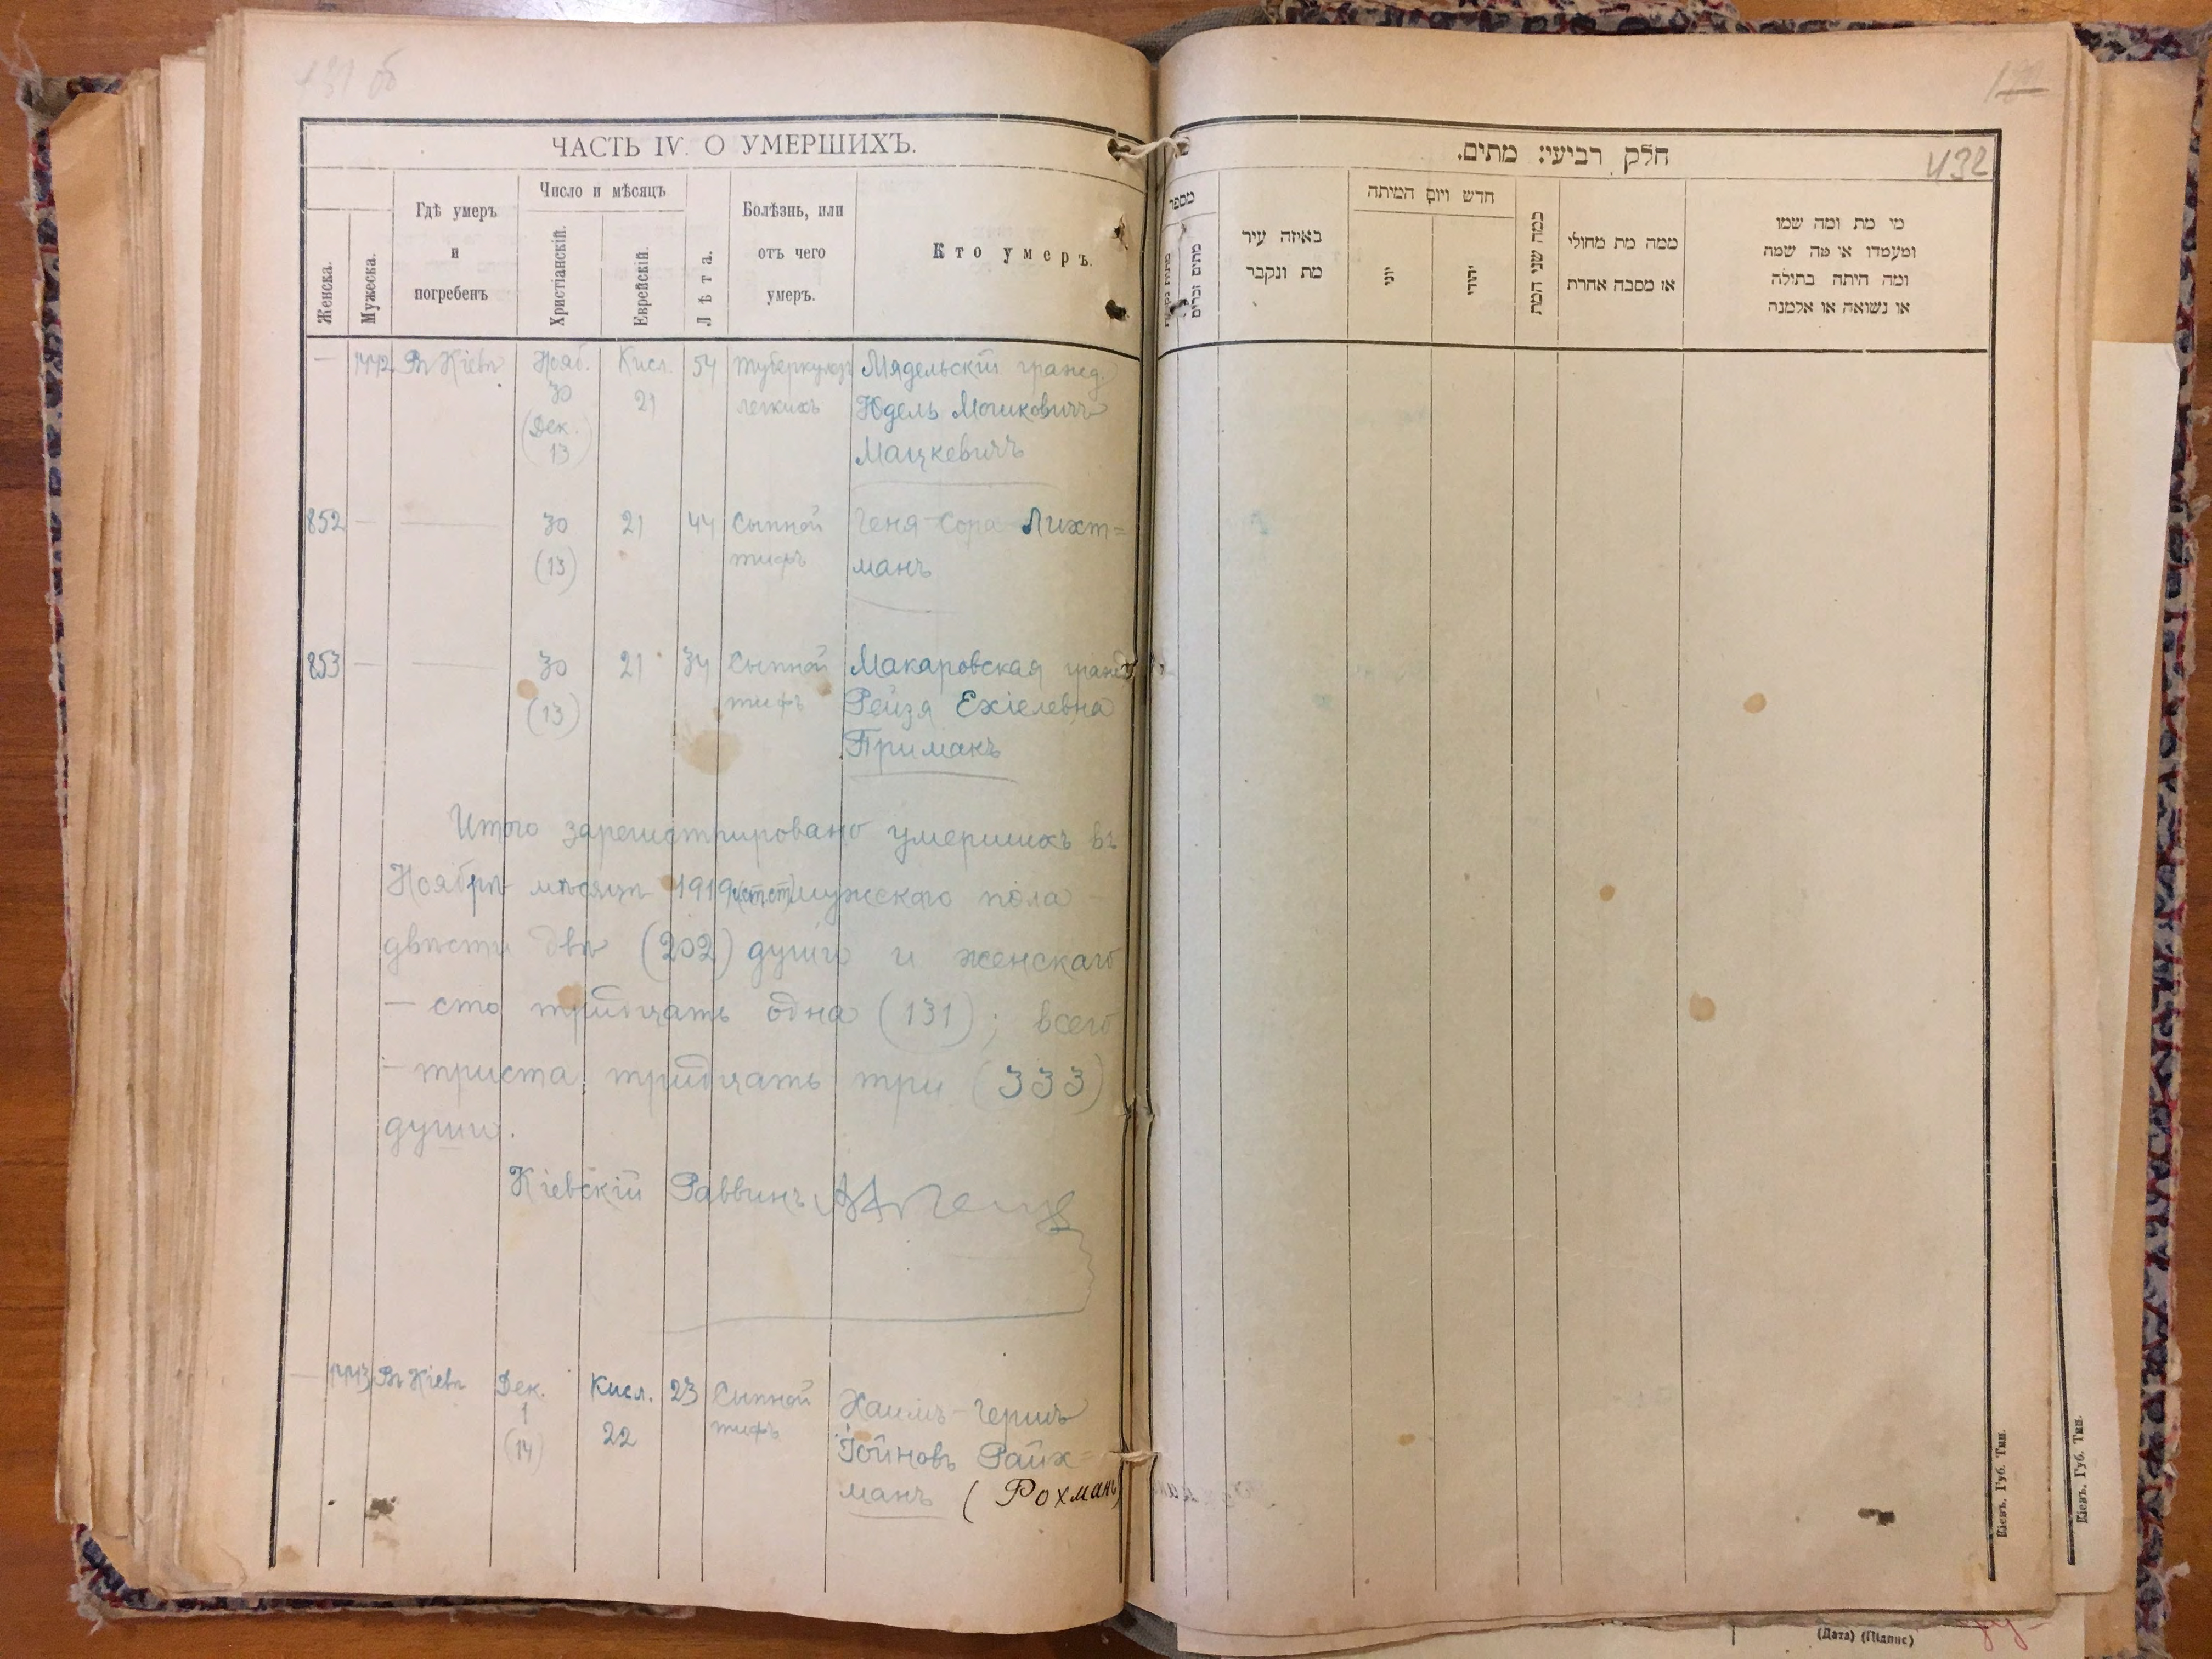 431 об
ЧАСТЬ IV. О УМЕРШИХЪ.
Женска.
Мужеска.
Гдѣ умеръ
и
погребенъ
Число и мѣсяцъ
Христіанскій.
Еврейскій.
Лѣта.
Болѣзнь, или
отъ чего
умеръ.
Кто умеръ.
— 1442 Въ Кіевѣ Нояб. Кисл. 54 туберкулозъ Мядельскій гражд.
30 21 легкихъ Юдель Мошковичъ
(Дек. Мацкевичъ
13)
852 — — 30 21 44 Сыпной Геня-Сора Лихт=
(13) тифъ манъ
853 — — 30 21 34 Сыпной Макаровская гражд.
(13) тифъ Рейзя Ехіелевна
Примакъ
Итого зарегистрировано умершихъ въ
Ноябрѣ мѣсяцѣ 1919 (ст.ст) мужского пола -
двѣсти двѣ (202) души и женскаго
— сто тридцать одна (131); всего
- триста тридцать три (333)
души.
Кіевскій Раввинъ
— 1443 Въ Кіевѣ Дек. Кисл. 23 Сыпной Хаимъ-Гершъ
1 22 тифъ Іойновъ Райх=
(14) манъ (Рохманъ)
חלק רביעי: מתים.
432
מספר
מתים זכרים
באיזה עיר
מת ונקבר
חדש ויום המיתה
יוני
יהודי
כמה שני המת
ממה מת מחולי
או מסבה אחרת
מי מת ומה שמו
ומעמדו או מה שמה
ומה היתה בתולה
או נשואה או אלמנה
Кіевъ. Губ. Тип.
Кіевъ. Губ. Тип.
(Дата) (Підпис)